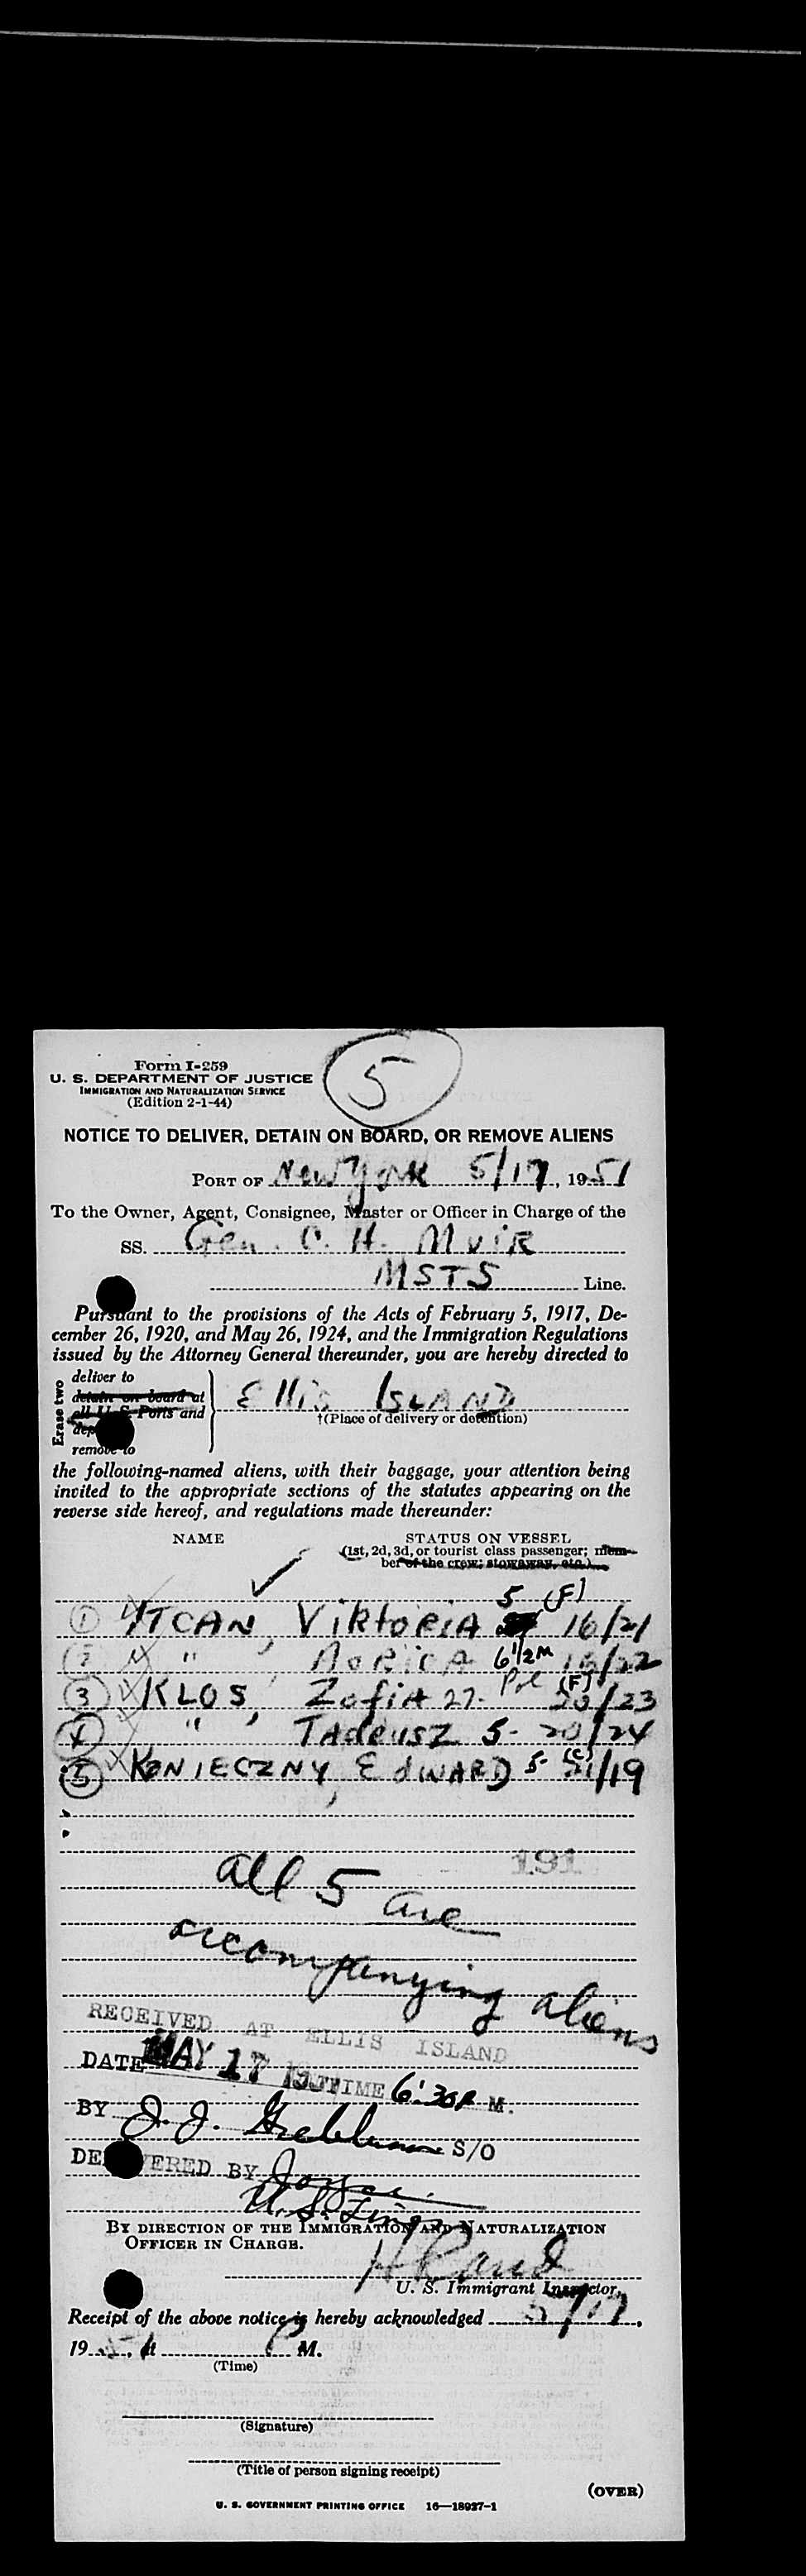 5
Form I-259
U. S. DEPARTMENT OF JUSTICE
IMMIGRATION AND NATURALIZATION SERVICE
(Edition 2-1-44)
NOTICE TO DELIVER, DETAIN ON BOARD, OR REMOVE ALIENS
PORT OF New York 5/17, 1951
To the Owner, Agent, Consignee, Master or Officer in Charge of the
SS. Gen. C. H. MUIR
MSTS Line.
Pursuant to the provisions of the Acts of February 5, 1917, De-
cember 26, 1920, and May 26, 1924, and the Immigration Regulations
issued by the Attorney General thereunder, you are hereby directed to
Erase two
deliver to
detain on board at
all U. S. Ports and
remove to
Ellis ISLAND
†(Place of delivery or detention)
the following-named aliens, with their baggage, your attention being
invited to the appropriate sections of the statutes appearing on the
reverse side hereof, and regulations made thereunder:
NAME STATUS ON VESSEL
(1st, 2d, 3d, or tourist class passenger; mem-
ber of the crew; stowaway, etc.)
5 (F)
1 ITCAN, ViktoRiA 16/21
2 " , AoRicA 6 1/2 M 16/22
3 KLOS, ZofiA 27. Pol (F) 20/23
4 " , TAdeusz 5- 20/24
5 KONIECZNY, EdWARD 5- (C) 21/19
191
all 5 are
accompanying aliens
RECEIVED AT ELLIS ISLAND
DATE MAY 17 1951 TIME 6:30P M.
BY J. J. S/O
DELIVERED BY Joyce
U.S. Lines
BY DIRECTION OF THE IMMIGRATION AND NATURALIZATION
OFFICER IN CHARGE.
H Rand
U. S. Immigrant Inspector.
Receipt of the above notice is hereby acknowledged 5/17,
19 5 , at P M.
(Time)
(Signature)
(Title of person signing receipt)
(OVER)
U. S. GOVERNMENT PRINTING OFFICE 16—18927-1